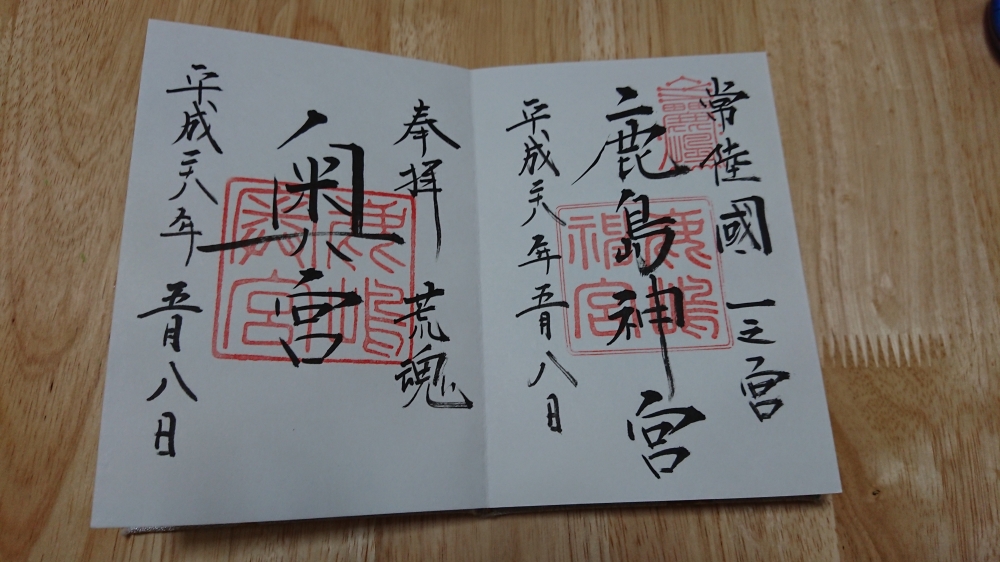 常陸國 一之宮
鹿島神宮
平成二十八年 五月八日
奉拝 荒魂
奥宮
平成二十八年 五月八日
鹿嶋神宮
鹿嶋奥宮